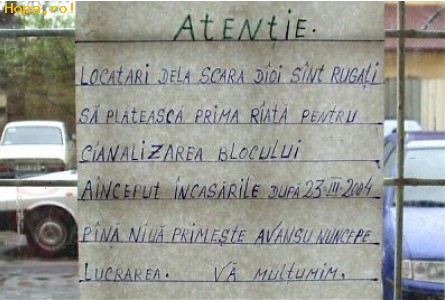 Hopa.ro!
ATENȚIE.
LOCATARI DELA SCARA DIOI SÎNT RUGAȚI
SĂ PLĂTEASCĂ PRIMA RIATĂ PENTRU
CIANALIZAREA BLOCULUI
AINCEPUT ÎNCASĂRILE DUPĂ 23-III-2004
PÎNĂ NIUĂ PRIMEȘTE AVANSU NUNCEPE
LUCRAREA. VĂ MULȚUMIM.